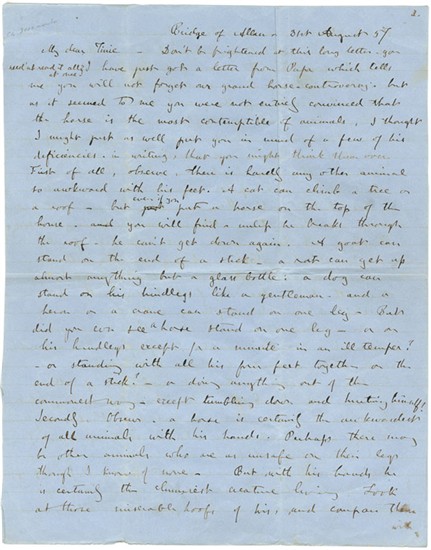 2.
Bridge of Allan - 31st August 57
My dear Tinie - Don't be frightened at this long letter - you
need not read it all if I have just got a letter from Papa which tells
me you will not forget our grand horse-controversy - but
as it seemed to me you were not entirely convinced that
the horse is the most contemptible of animals, I thought
I might just as well put you in mind of a few of his
deficiencies - in writing, that you might think them over.
First of all, observe, there is hardly any other animal
so awkward with his feet. A cat can climb a tree or
even if you
a roof - but just put a horse on the top of the
house - and you will find - unless he breaks through
the roof - he can't get down again. A goat can
stand on the end of a stick - a rat can get up
almost anything but a glass bottle - a dog can
stand on his hindlegs like a gentleman - and a
heron or a crane can stand on one leg - But
did you ever see a horse stand on one leg - or on
his hindlegs except for a minute in an ill temper?
- or standing with all his four feet together on the
end of a stick? - or doing anything out of the
commonest way - except tumbling down and hurting himself?
Secondly. Observe - a horse is certainly the awkwardest
of all animals with his hands. Perhaps there may
be other animals who are as unsafe on their legs
though I know of none - But with his hands he
is certainly the clumsiest creature living Look
at those miserable hoofs of his, and compare them
with